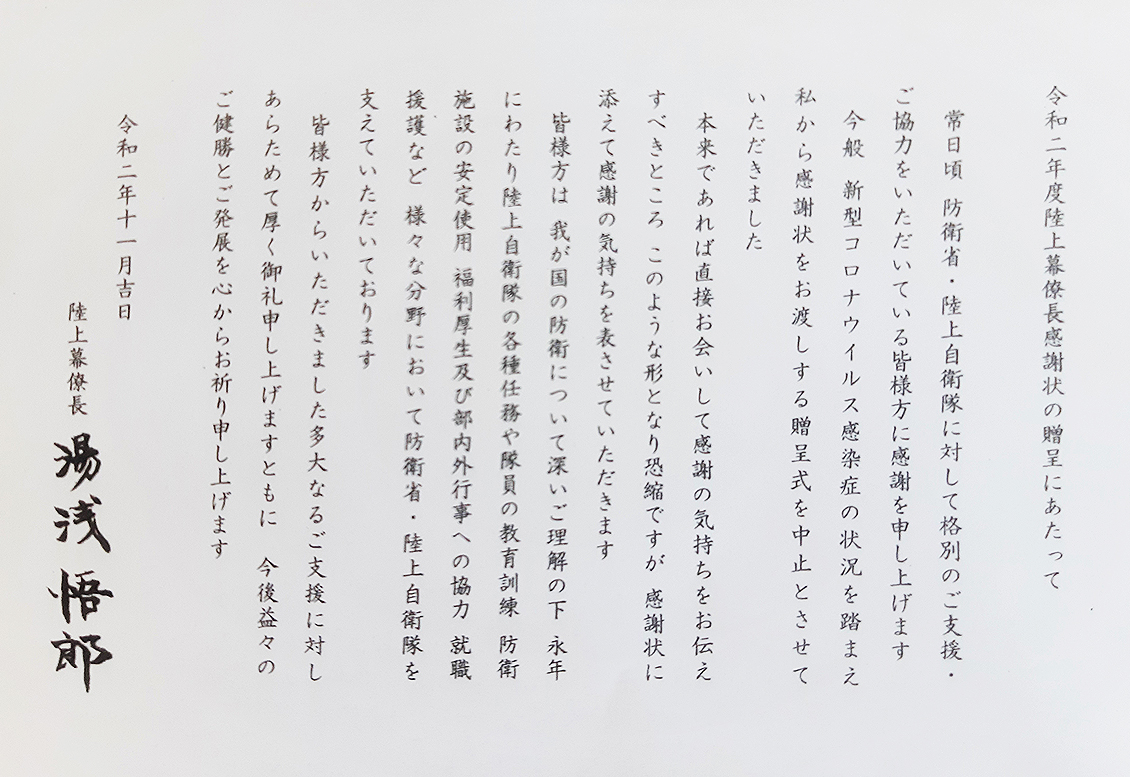 令和二年度陸上幕僚長感謝状の贈呈にあたって
常日頃 防衛省・陸上自衛隊に対して格別のご支援・
ご協力をいただいている皆様方に感謝を申し上げます
今般 新型コロナウイルス感染症の状況を踏まえ
私から感謝状をお渡しする贈呈式を中止とさせて
いただきました
本来であれば直接お会いして感謝の気持ちをお伝え
すべきところ このような形となり恐縮ですが 感謝状に
添えて感謝の気持ちを表させていただきます
皆様方は 我が国の防衛について深いご理解の下 永年
にわたり陸上自衛隊の各種任務や隊員の教育訓練 防衛
施設の安定使用 福利厚生及び部内外行事への協力 就職
援護など 様々な分野において防衛省・陸上自衛隊を
支えていただいております
皆様方からいただきました多大なるご支援に対し
あらためて厚く御礼申し上げますともに 今後益々の
ご健勝とご発展を心からお祈り申し上げます
令和二年十一月吉日
陸上幕僚長 湯浅悟郎